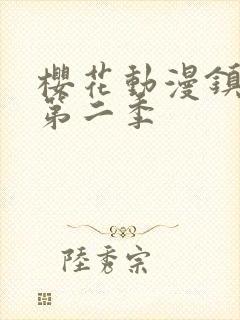 櫻花動漫鎮
第二季
陸秀宗